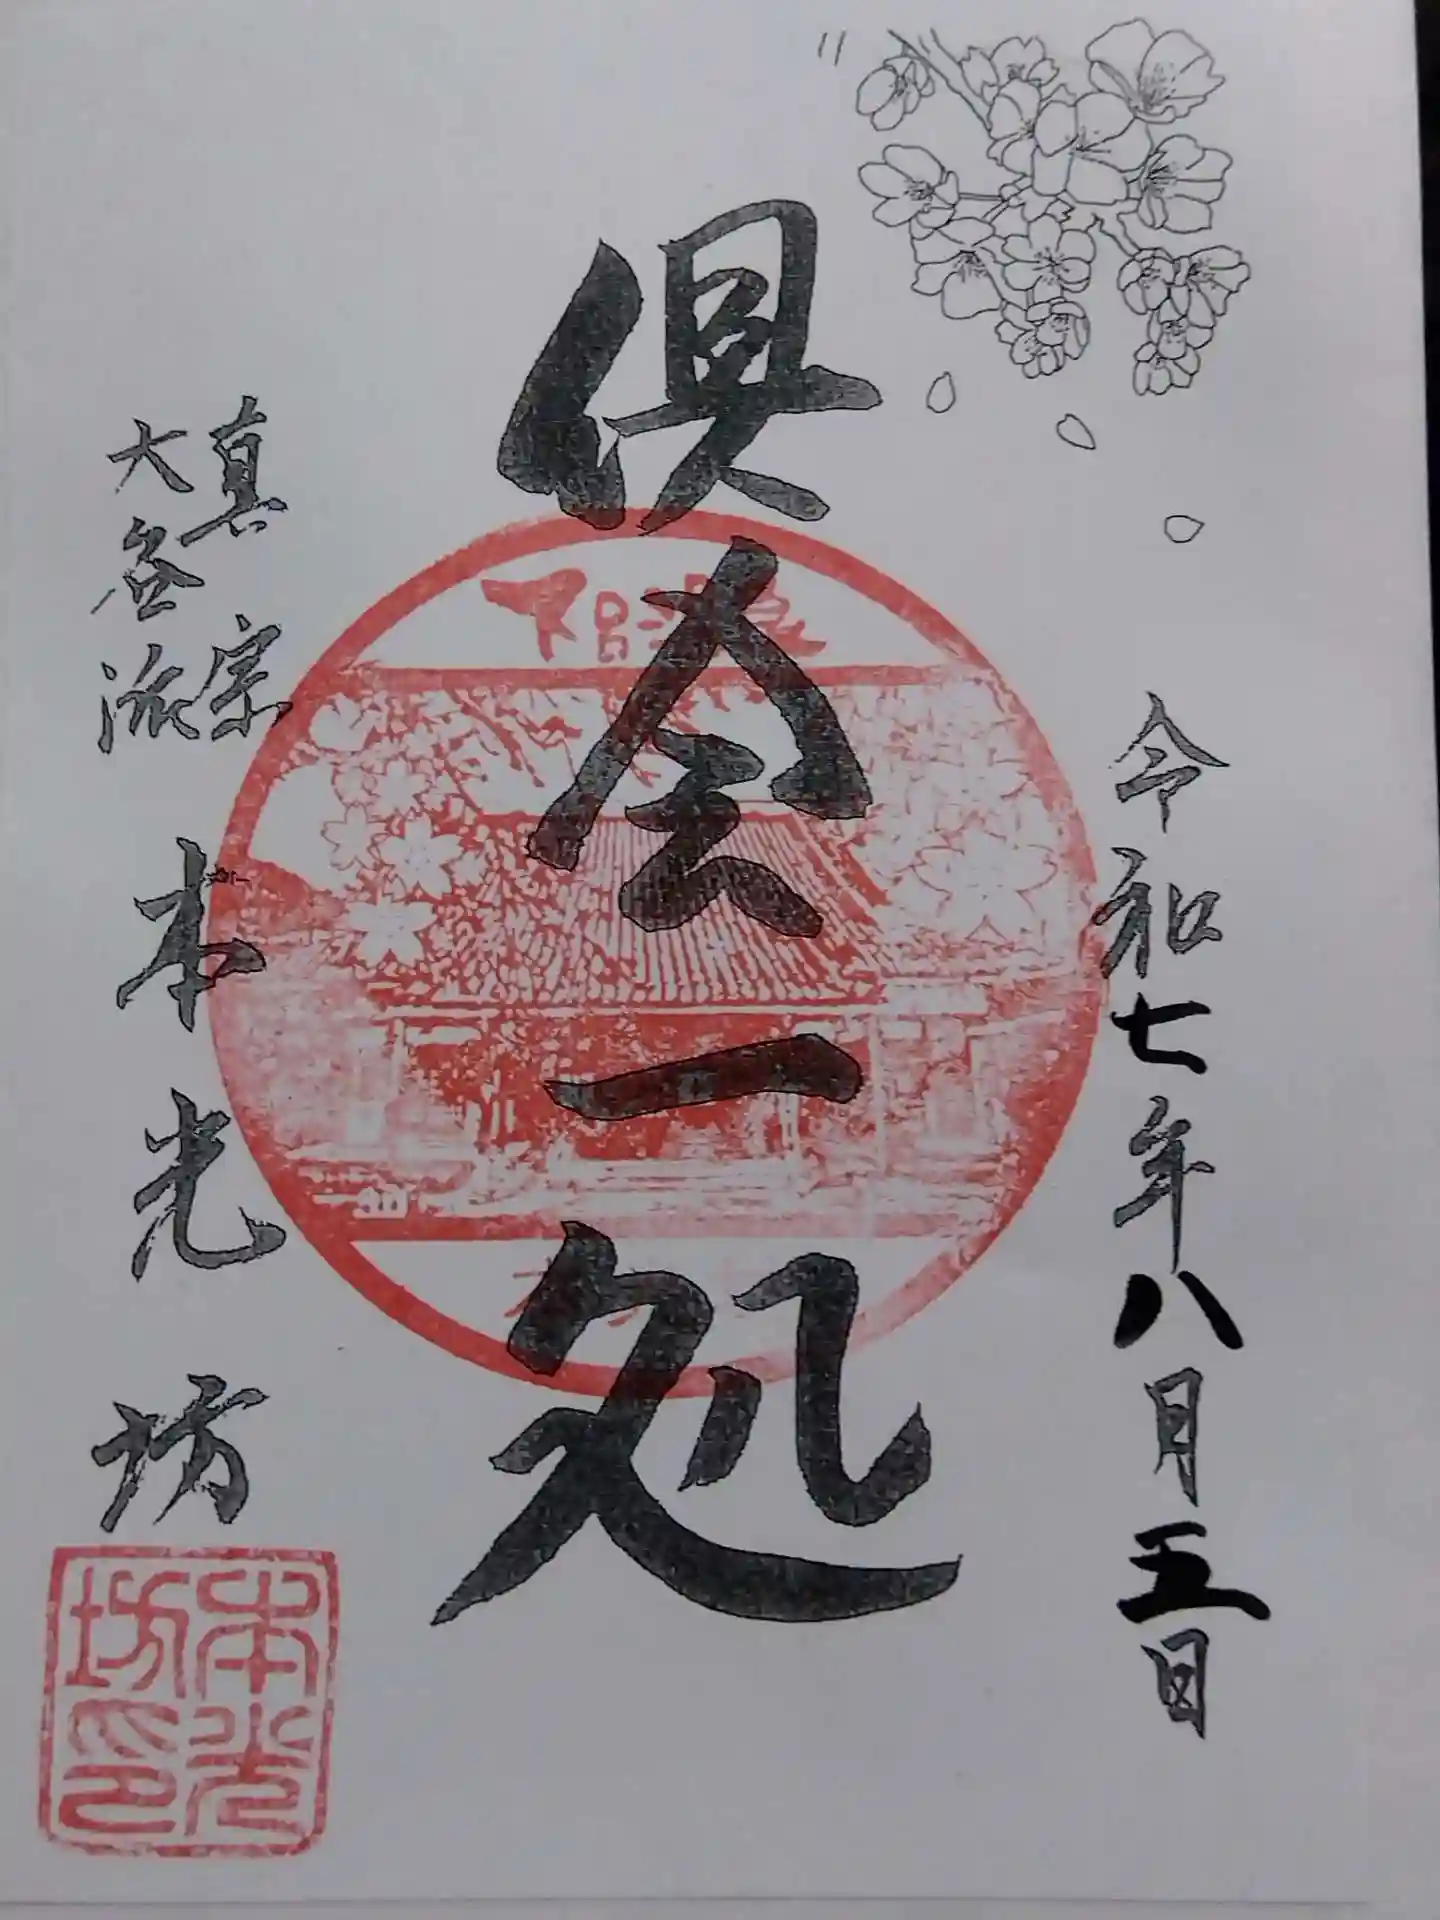 令和七年八月五日
倶会一処
真宗
大谷派
本光坊
本光
坊印